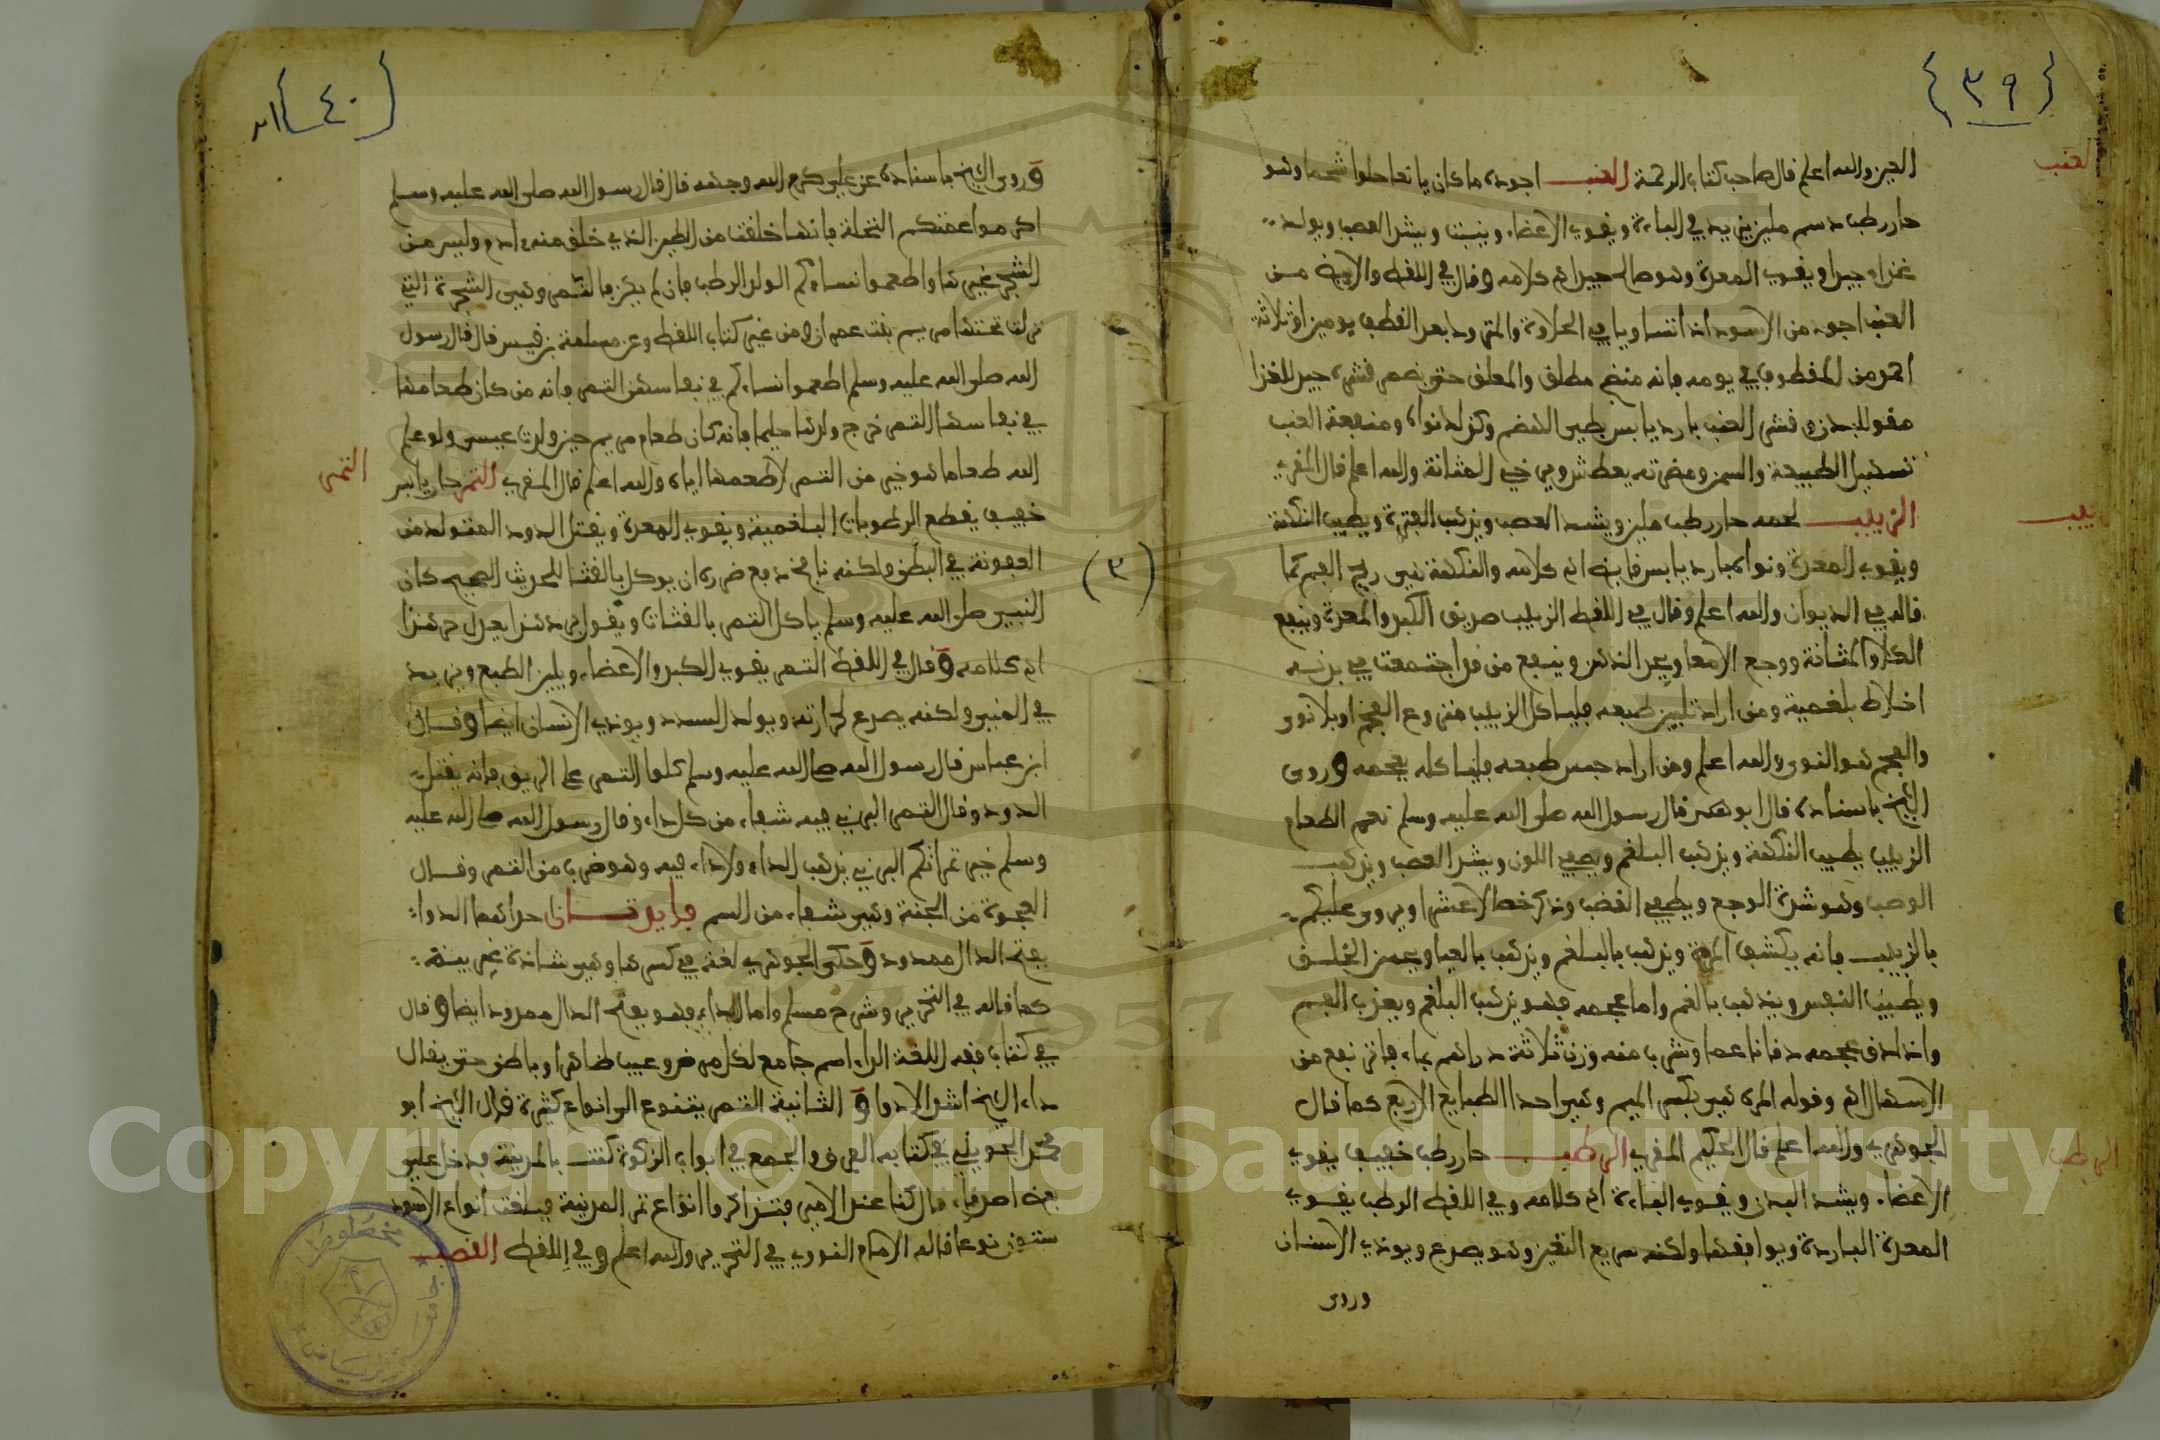 {٣٩}
العنب
العين والله اعلم قال صاحب كتاب الرحمة العنب اجوده ما كان يانعا حلوا شحما وهو
حار رطب دسم ملين يزيد في الباءة ويقوي الاعضاء وينبت ويشد العصب ويولد
غذاء جيدا ويقوي المعدة وهو صالح جيد اهـ كلامه وقال في اللقط والابيض من
العنب اجود من الاسود اذا تساويا في الحلاوة والمتروك بعد القطف يومين او ثلاثة
احمد من المقطوف في يومه فانه منفخ مطلق والمعلق حتى يضمر قشره جيد للغذا
مقو للبدن وقشر العنب بارد يابس بطيء الهضم وكذلك نواه ومنفعة العنب
تسهيل الطبيعة والسمن ومضرته يعطش ويرخي المثانة والله اعلم قال المقري
الزبيب لحمه حار رطب ملين ويشد العصب ويذهب الفترة ويطيب النكهة
ويقوي المعدة ونواه بارد يابس قابض اهـ كلامه والنكهة هي ريح الفم كما
قاله في الديوان والله اعلم وقال في اللقط الزبيب صديق الكبد والمعدة وينفع
الكلا والمثانة ووجع الامعا ويحد الذهن وينفع من قد اجتمعت في بدنه
اخلاط بلغمية ومن اراد تليين طبعه فلياكل الزبيب منزوع العجم او بلا نوى
والعجم هو النوى والله اعلم ومن اراد حبس طبعه فلياكله بعجمه وروى
الشيخ باسناده قال ابو هند قال رسول الله صلى الله عليه وسلم نعم الطعام
الزبيب يطيب النكهة ويذهب البلغم ويصفي اللون ويشد العصب ويذهب
الوصب وهو شدة الوجع ويطفي الغضب وذكر خصالا عشرا ويروى عليكم
بالزبيب فانه يكشف المرة ويذهب بالبلغم ويذهب بالعيا ويحسن الخلق
ويطيب النفس ويذهب بالغم واما عجمه فهو يذهب البلغم ويعذب الفم
واذا دق عجمه دقا ناعما وشرب منه وزن ثلاثة دراهم بماء فاتر نفع من
الاسهال اهـ وقوله المرة هي بكسر الميم وهي احدا الطبايع الاربع كما قال
الجوهري والله اعلم قال الحكيم المقري الرطب حار رطب خفيف يقوي
الرطب
الاعضاء ويشد البدن ويقوي الباءة اهـ كلامه وفي اللقط الرطب يقوي
المعدة الباردة ويوافقها ولكنه سريع التغير وهو يصدع ويوذي الاسنان
وروى
{٤٠}
وروى الشيخ باسناده عن علي كرم الله وجهه قال قال رسول الله صلى الله عليه وسلم
اكرموا عمتكم النخلة فانها خلقت من الطين الذي خلق منه ادم وليس من
الشجر غيرها واطعموا نساءكم الولد الرطب فان لم يكن فالتمر وهي الشجرة التي
نزلت تحتها مريم بنت عمران ومن غير كتاب اللقط وعن مسلمة بن قيس قال قال رسول
الله صلى الله عليه وسلم اطعموا نساءكم في نفاسهن التمر فانه من كان طعامها
في نفاسها التمر خرج ولدها حليما فانه كان طعام مريم حين ولدت عيسى ولو علم
الله طعاما هو خير من التمر لاطعمها اياه والله اعلم قال المقري التمر حار يابس
التمر
خفيف يقطع الرطوبات البلغمية ويقوي المعدة ويقتل الدود المتولد من
العفونة في البطن ولكنه نافخ دفع ضرره ان يوكل بالقثا للحديث الصحيح كان
النبي صلى الله عليه وسلم ياكل التمر بالقثاء ويقول برد هذا يعدل حر هذا
(٣)
اهـ كلامه وقال في اللقط التمر يقوي الكبد والاعضاء ويلين الطبع ويزيد
في المني ولكنه يصدع لحرارته ويولد السدد ويوذي الاسنان ايضا وقال
ابن عباس قال رسول الله صلى الله عليه وسلم كلوا التمر على الريق فانه يقتل
الدود وقال التمر البرني فيه شفاء من كل داء وقال رسول الله صلى الله عليه
وسلم خير تمراتكم البرني يذهب الداء ولا داء فيه وهو ضرب من التمر وقال
العجوة من الجنة وهي شفاء من السم فايدتان احداهما الدواء
بفتح الدال ممدود وحكى الجوهري لغة في كسرها وهي شاذة غريبة
كما قاله في التحرير وشرح مسلم واما الداء فهو بفتح الدال ممدود ايضا وقال
في كتاب فقه اللغة الداء اسم جامع لكل مرض وعيب ظاهر او باطن حتى يقال
داء الشيخ اشد الادواء والثانية التمر يتنوع الى انواع كثيرة قال الشيخ ابو
محمد الجويني في كتابه الفروق والجمع في ابواب الزكوة كنت بالمدينة فدخل علي
بعض اصدقاء قال كنا عند الامير فتذاكروا انواع تمر المدينة فبلغت انواع الاسود
ستون نوعا قاله الامام النووي في التحرير والله اعلم وفي اللقط القصب
مخطوطات
جامعة الرياض
Copyright © King Saud University
1957